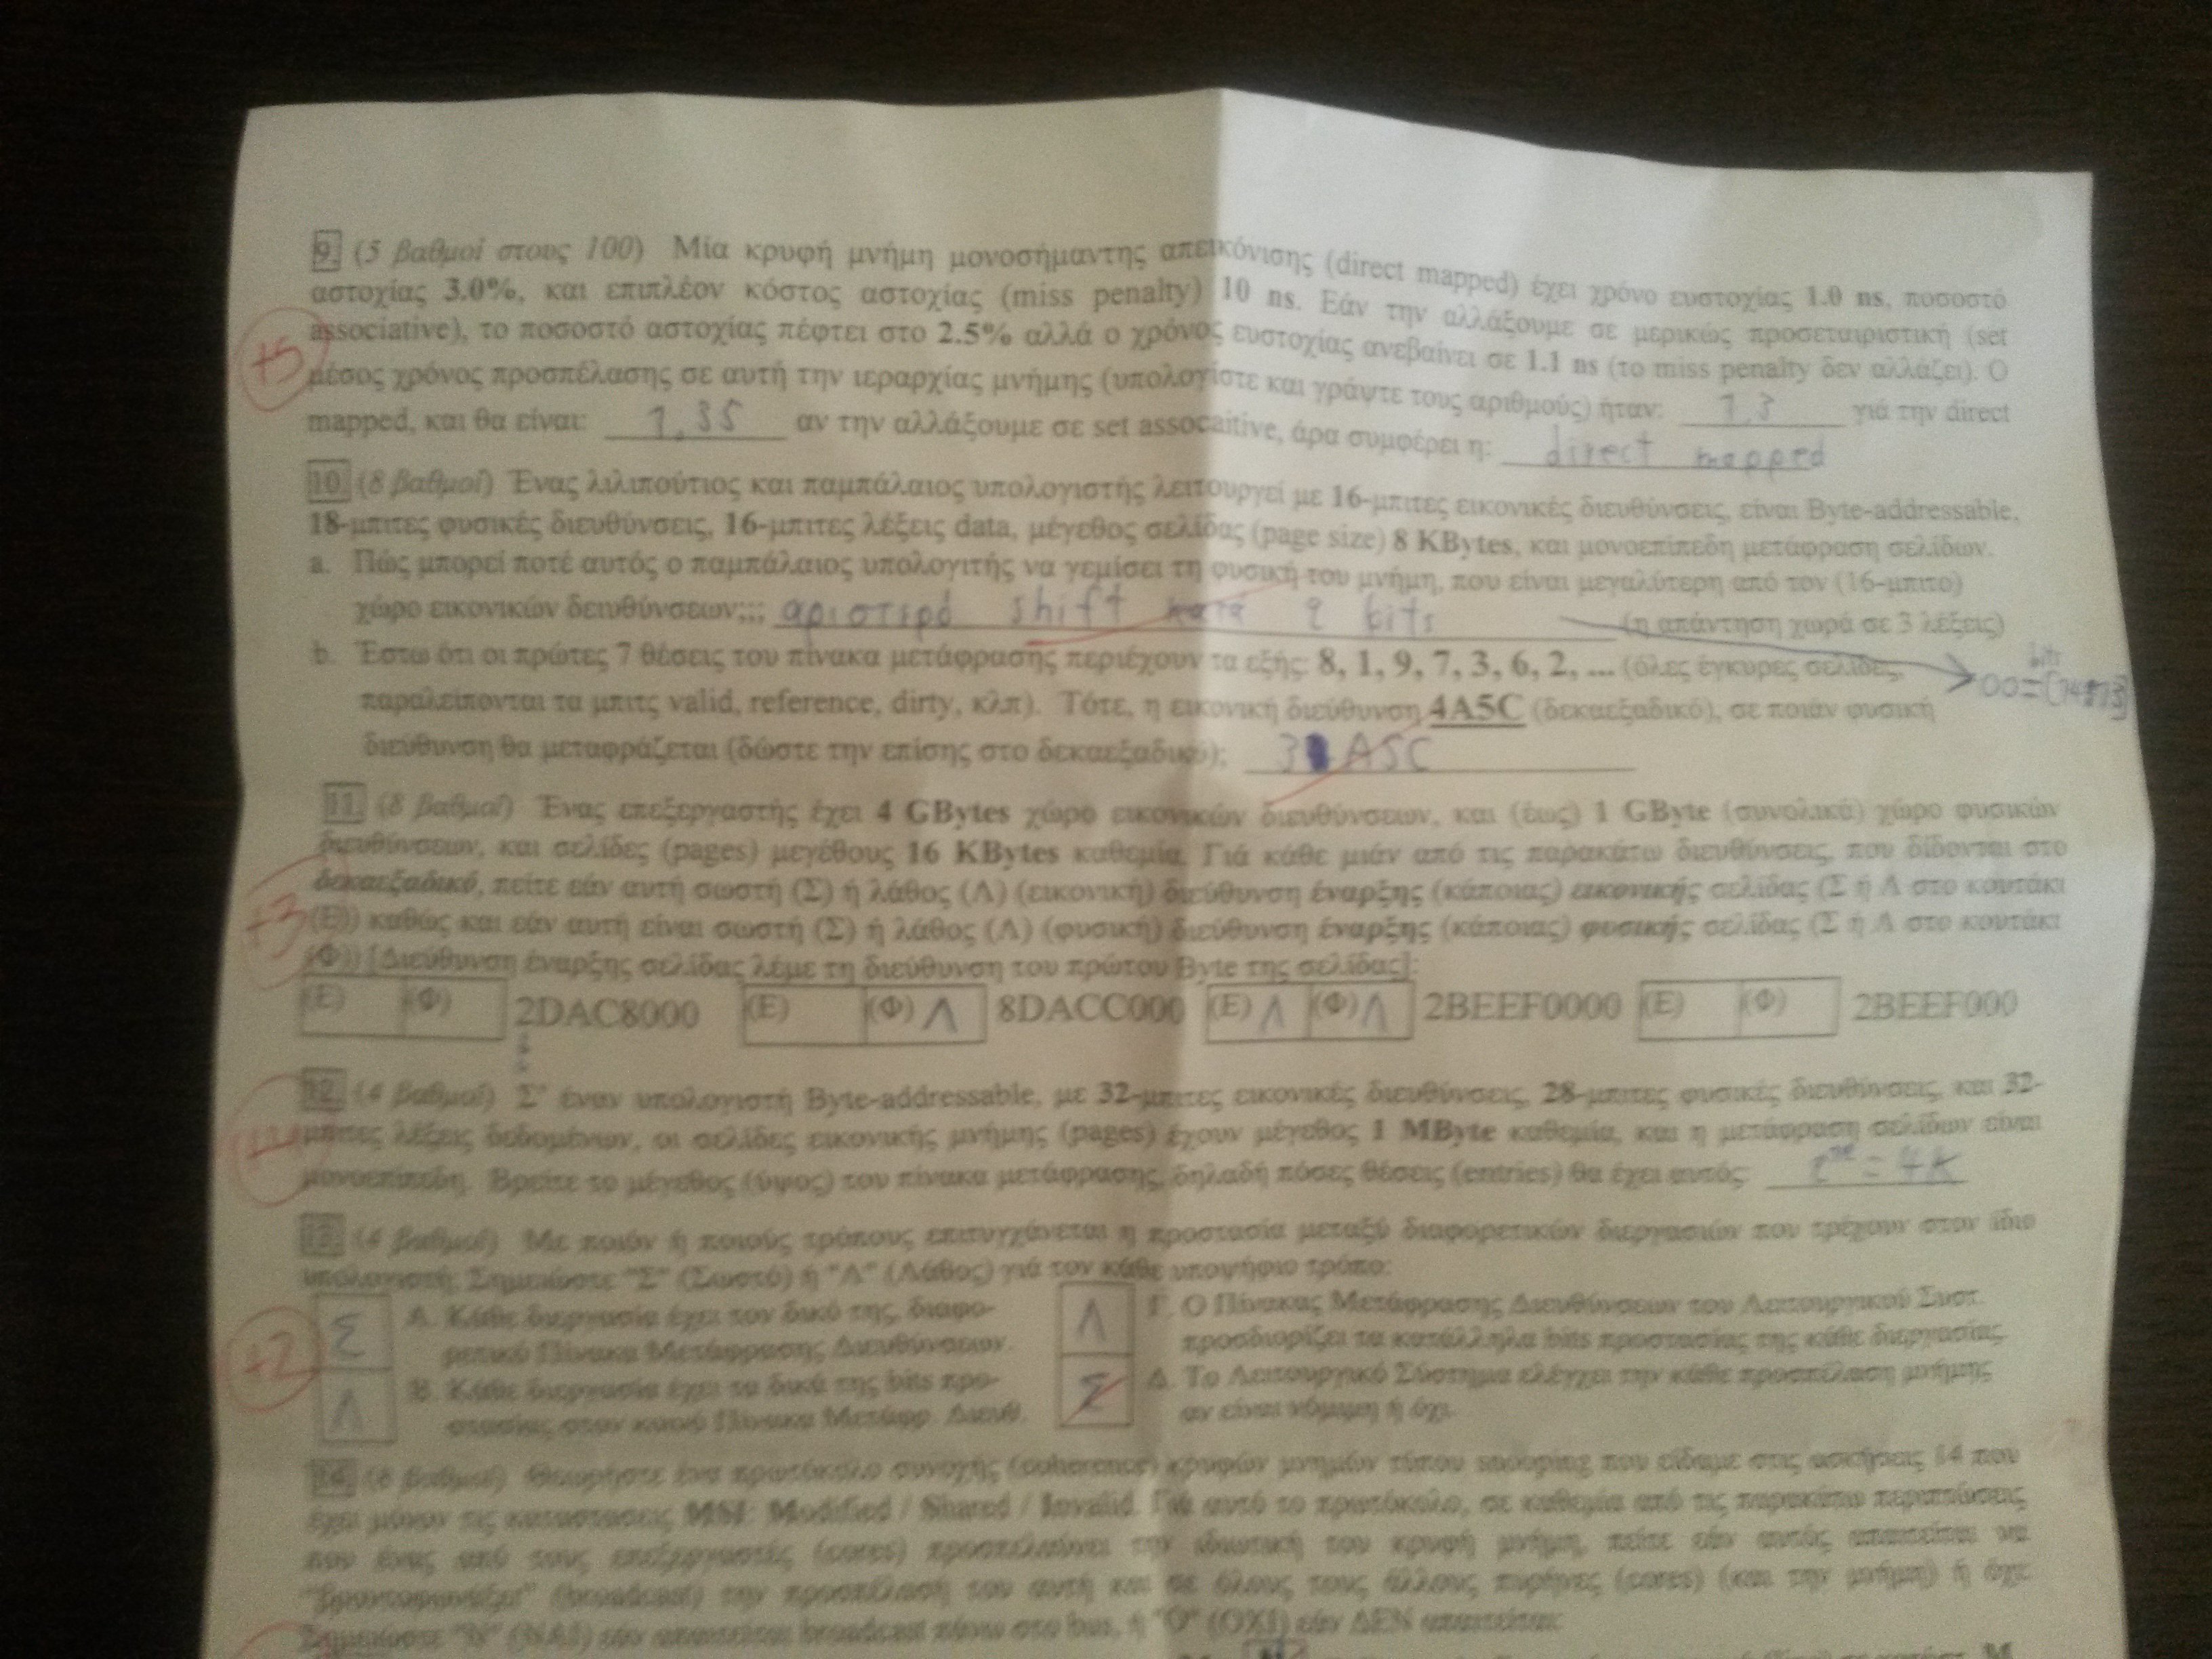 9. (5 βαθμοί στους 100) Μία κρυφή μνήμη μονοσήμαντης απεικόνισης (direct mapped) έχει χρόνο ευστοχίας 1.0 ns, ποσοστό
αστοχίας 3.0%, και επιπλέον κόστος αστοχίας (miss penalty) 10 ns. Εάν την αλλάξουμε σε μερικώς προσεταιριστική (set
associative), το ποσοστό αστοχίας πέφτει στο 2.5% αλλά ο χρόνος ευστοχίας ανεβαίνει σε 1.1 ns (το miss penalty δεν αλλάζει). Ο
+5
μέσος χρόνος προσπέλασης σε αυτή την ιεραρχίας μνήμης (υπολογίστε και γράψτε τους αριθμούς) ήταν: 1.3 γιά την direct
mapped, και θα είναι: 1.35 αν την αλλάξουμε σε set assocaitive, άρα συμφέρει η: direct mapped
10. (8 βαθμοί) Ένας λιλιπούτιος και παμπάλαιος υπολογιστής λειτουργεί με 16-μπιτες εικονικές διευθύνσεις, είναι Byte-addressable,
18-μπιτες φυσικές διευθύνσεις, 16-μπιτες λέξεις data, μέγεθος σελίδας (page size) 8 KBytes, και μονοεπίπεδη μετάφραση σελίδων.
a. Πώς μπορεί ποτέ αυτός ο παμπάλαιος υπολογιτής να γεμίσει τη φυσική του μνήμη, που είναι μεγαλύτερη από τον (16-μπιτο)
χώρο εικονικών δειυθύνσεων;;; αριστερό shift κατά 2 bits (η απάντηση χωρά σε 3 λέξεις)
b. Έστω ότι οι πρώτες 7 θέσεις του πίνακα μετάφρασης περιέχουν τα εξής: 8, 1, 9, 7, 3, 6, 2, ... (όλες έγκυρες σελίδες,
bits
00=
παραλείπονται τα μπιτς valid, reference, dirty, κλπ). Τότε, η εικονική διεύθυνση 4A5C (δεκαεξαδικό), σε ποιάν φυσική
διεύθυνση θα μεταφράζεται (δώστε την επίσης στο δεκαεξαδικό); 3 A5C
11. (8 βαθμοί) Ένας επεξεργαστής έχει 4 GBytes χώρο εικονικών διευθύνσεων, και (έως) 1 GByte (συνολικά) χώρο φυσικών
διευθύνσεων, και σελίδες (pages) μεγέθους 16 KBytes καθεμία. Γιά κάθε μιάν από τις παρακάτω διευθύνσεις, που δίδονται στο
δεκαεξαδικό, πείτε εάν αυτή σωστή (Σ) ή λάθος (Λ) (εικονική) διεύθυνση έναρξης (κάποιας) εικονικής σελίδας (Σ ή Λ στο κουτάκι
+3
(Ε)) καθώς και εάν αυτή είναι σωστή (Σ) ή λάθος (Λ) (φυσική) διεύθυνση έναρξης (κάποιας) φυσικής σελίδας (Σ ή Λ στο κουτάκι
(Φ)) [Διεύθυνση έναρξης σελίδας λέμε τη διεύθυνση του πρώτου Byte της σελίδας]:
(Ε) (Φ) 2DAC8000 (Ε) (Φ) Λ 8DACC000 (Ε) Λ (Φ) Λ 2BEEF0000 (Ε) (Φ) 2BEEF000
12. (4 βαθμοί) Σ' έναν υπολογιστή Byte-addressable, με 32-μπιτες εικονικές διευθύνσεις, 28-μπιτες φυσικές διευθύνσεις, και 32-
μπιτες λέξεις δεδομένων, οι σελίδες εικονικής μνήμης (pages) έχουν μέγεθος 1 MByte καθεμία, και η μετάφραση σελίδων είναι
μονοεπίπεδη. Βρείτε το μέγεθος (ύψος) του πίνακα μετάφρασης, δηλαδή πόσες θέσεις (entries) θα έχει αυτός: = 4K
13. (4 βαθμοί) Με ποιόν ή ποιούς τρόπους επιτυγχάνεται η προστασία μεταξύ διαφορετικών διεργασιών που τρέχουν στον ίδιο
υπολογιστή; Σημειώστε "Σ" (Σωστό) ή "Λ" (Λάθος) γιά τον κάθε υποψήφιο τρόπο:
Σ Α. Κάθε διεργασία έχει τον δικό της, διαφο-
ρετικό Πίνακα Μετάφρασης Διευθύνσεων.
+2
Λ Β. Κάθε διεργασία έχει τα δικά της bits προ-
στασίας στον κοινό Πίνακα Μετάφρ. Διευθ.
Λ Γ. Ο Πίνακας Μετάφρασης Διευθύνσεων του Λειτουργικού Συστ.
προσδιορίζει τα κατάλληλα bits προστασίας της κάθε διεργασίας.
Σ Δ. Το Λειτουργικό Σύστημα ελέγχει την κάθε προσπέλαση μνήμης
αν είναι νόμιμη ή όχι.
14. (8 βαθμοί) Θεωρήστε ένα πρωτόκολο συνοχής (coherence) κρυφών μνημών τύπου snooping που είδαμε στις ασκήσεις 14 που
έχει μόνον τις καταστάσεις MSI: Modified / Shared / Invalid. Γιά αυτό το πρωτόκολο, σε καθεμία από τις παρακάτω περιπτώσεις
που ένας από τους επεξεργαστές (cores) προσπελαύνει την ιδιωτική του κρυφή μνήμη, πείτε εάν αυτός απαιτείται να
(broadcast) την προσπέλασή του αυτή και σε όλους τους άλλους πυρήνες (cores) (και την μνήμη) ή όχι.
Σημειώστε "Ν" (ΝΑΙ) εάν απαιτείται broadcast πάνω στο bus, ή "Ο" (ΟΧΙ) εάν ΔΕΝ απαιτείται: